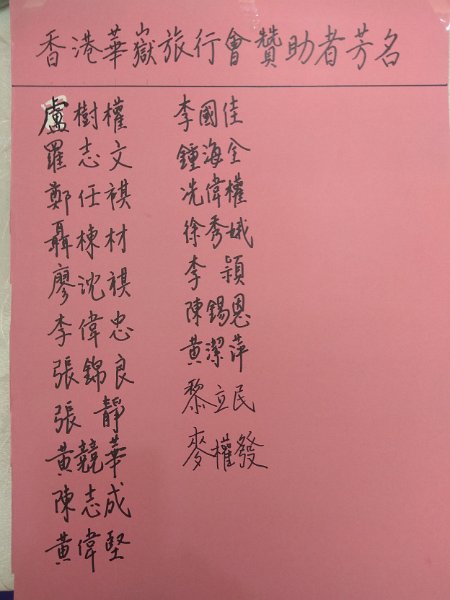 香港華嶽旅行會贊助者芳名
盧樹權
羅志文
鄭任祺
聶棟材
廖沈祺
李偉忠
張錦良
張靜
黃競華
陳志成
黃偉堅
李國佳
鍾海全
冼偉權
徐秀娥
李穎
陳錫恩
黃潔萍
黎立民
麥權發